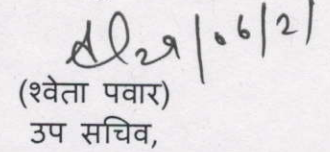 29/06/21
(श्वेता पवार)
उप सचिव,